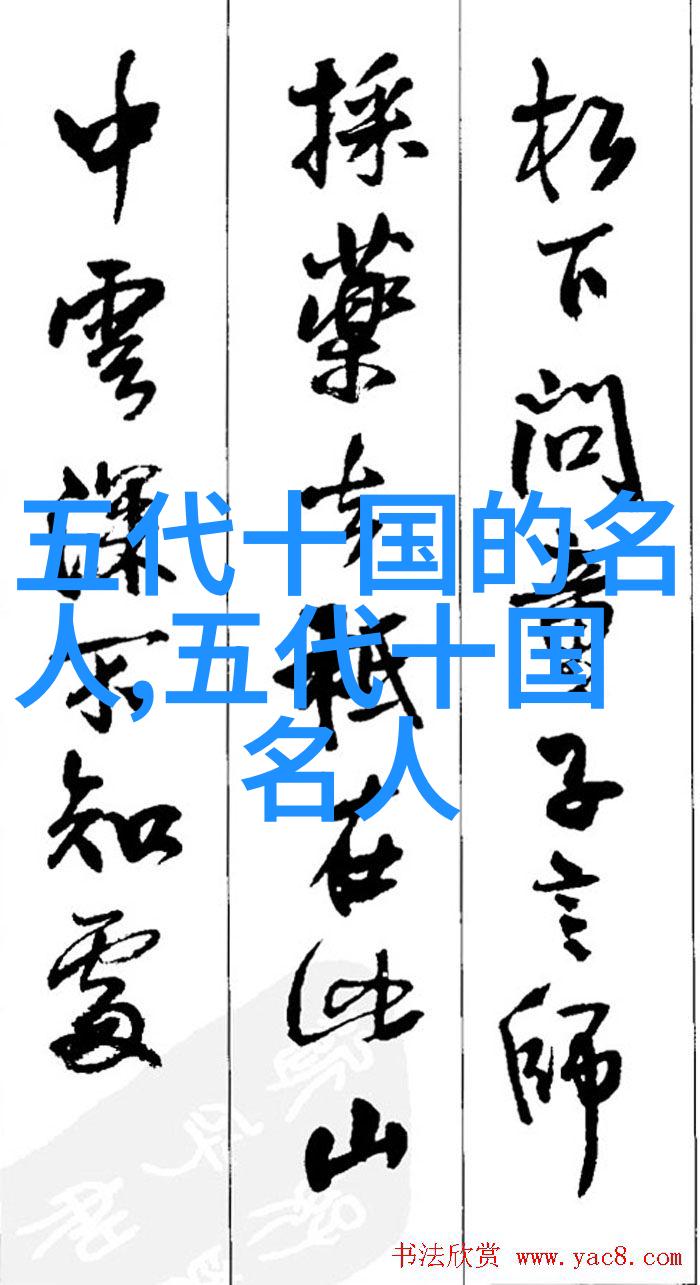 松下問童子言師
採藥去祗在此山
中雲深不知處
五代十国的名
人,五代十国
名人
书法欣赏 www.yac8.com